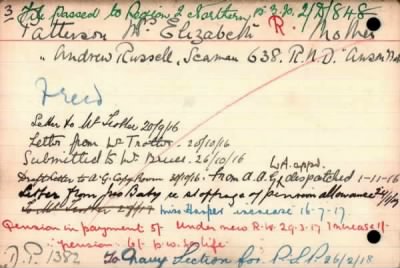 3 File passed to Region 2 Northern p: 3.90. 2/D/848
Patterson Mrs Elizabeth R. Mother
" Andrew Russell, Seaman 638. R.N.D. "Anson" Batt
Freed
Letter to Mr Trotter 20/9/16
Letter from Mr Trotter 20/10/16
Submitted to Mr Bruce. 26/10/16
Draft Letter to A.G. Copy Room 28/10/16. From A.G. L.A. appd. despatched 1-11-16
Letter from re stoppage of pension allowance
to Mr Miss Harper increase 16-7-17
Pension in payment 5/- Under new R.W. 29.3.17 Increase 1/-
pension 6/- p.w. for life
D.P. 1382 To Navy Section for P.S.P. 26/2/18